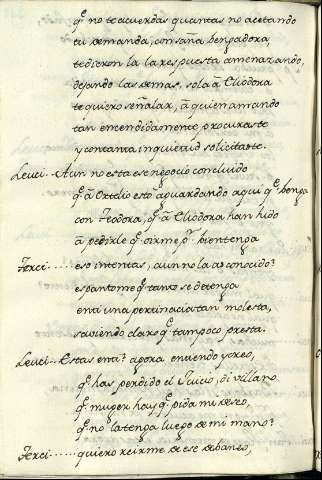 q.^e no te acuerdas quantas no acetando
tu demanda, con saña bengadora,
te dieron la la respuesta amenazando,
dejando las demas, sola â Eliodora
te quiero señalar, â quien amando
tan encendidamente, procuraste
y con tanta inquietud solicitaste.
Leuci. Aun no esta ese negocio concluido
q.^e â Ortelio estoy aguardando aqui q.^e benga
con Teodora, q.^e â Eliodora han hido
â pedirle q.^e oirme p.^r bien tenga
Terci...... eso intentas, aun no la as conocido?
espantome q.^e tanto se detenga
en ti una pertinacia tan molesta,
saviendo claro q.^e tampoco presta.
Leuci. Estas en ti? agora entiendo y creo,
q.^e has perdido el Juicio, di villano
q.^e muger hay q.^e pida mi deseo,
q.^e no la tenga luego de mi mano?
Terci..... quiero reirme de ese debaneo,